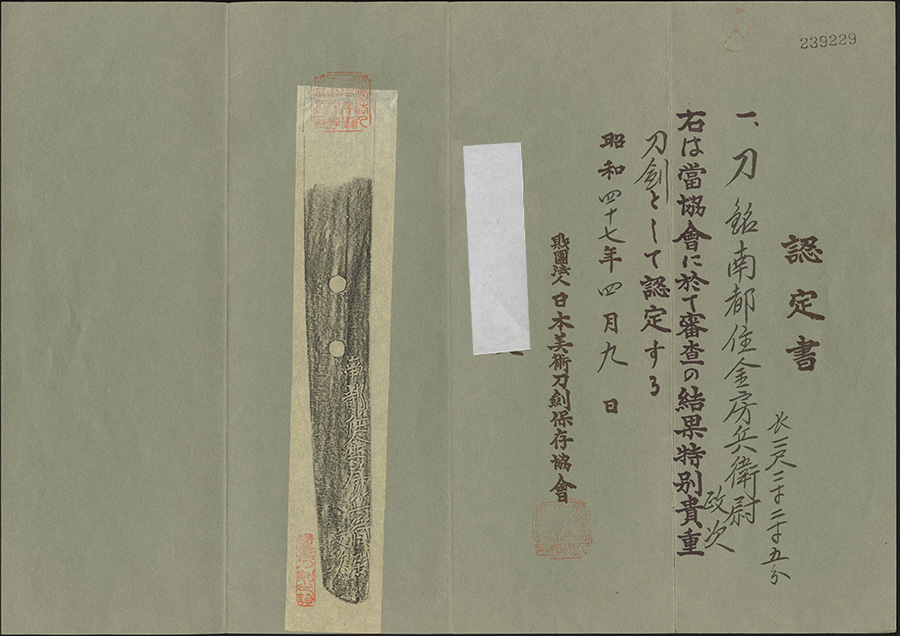 239229
認定書
長 五分
一、刀 銘南都住金房兵衛尉政次
右は當協會に於て審査の結果特別貴重
刀剣として認定する
昭和四十七年四月九日
財團法人日本美術刀劍保存協會
南都住金房兵衛尉政次